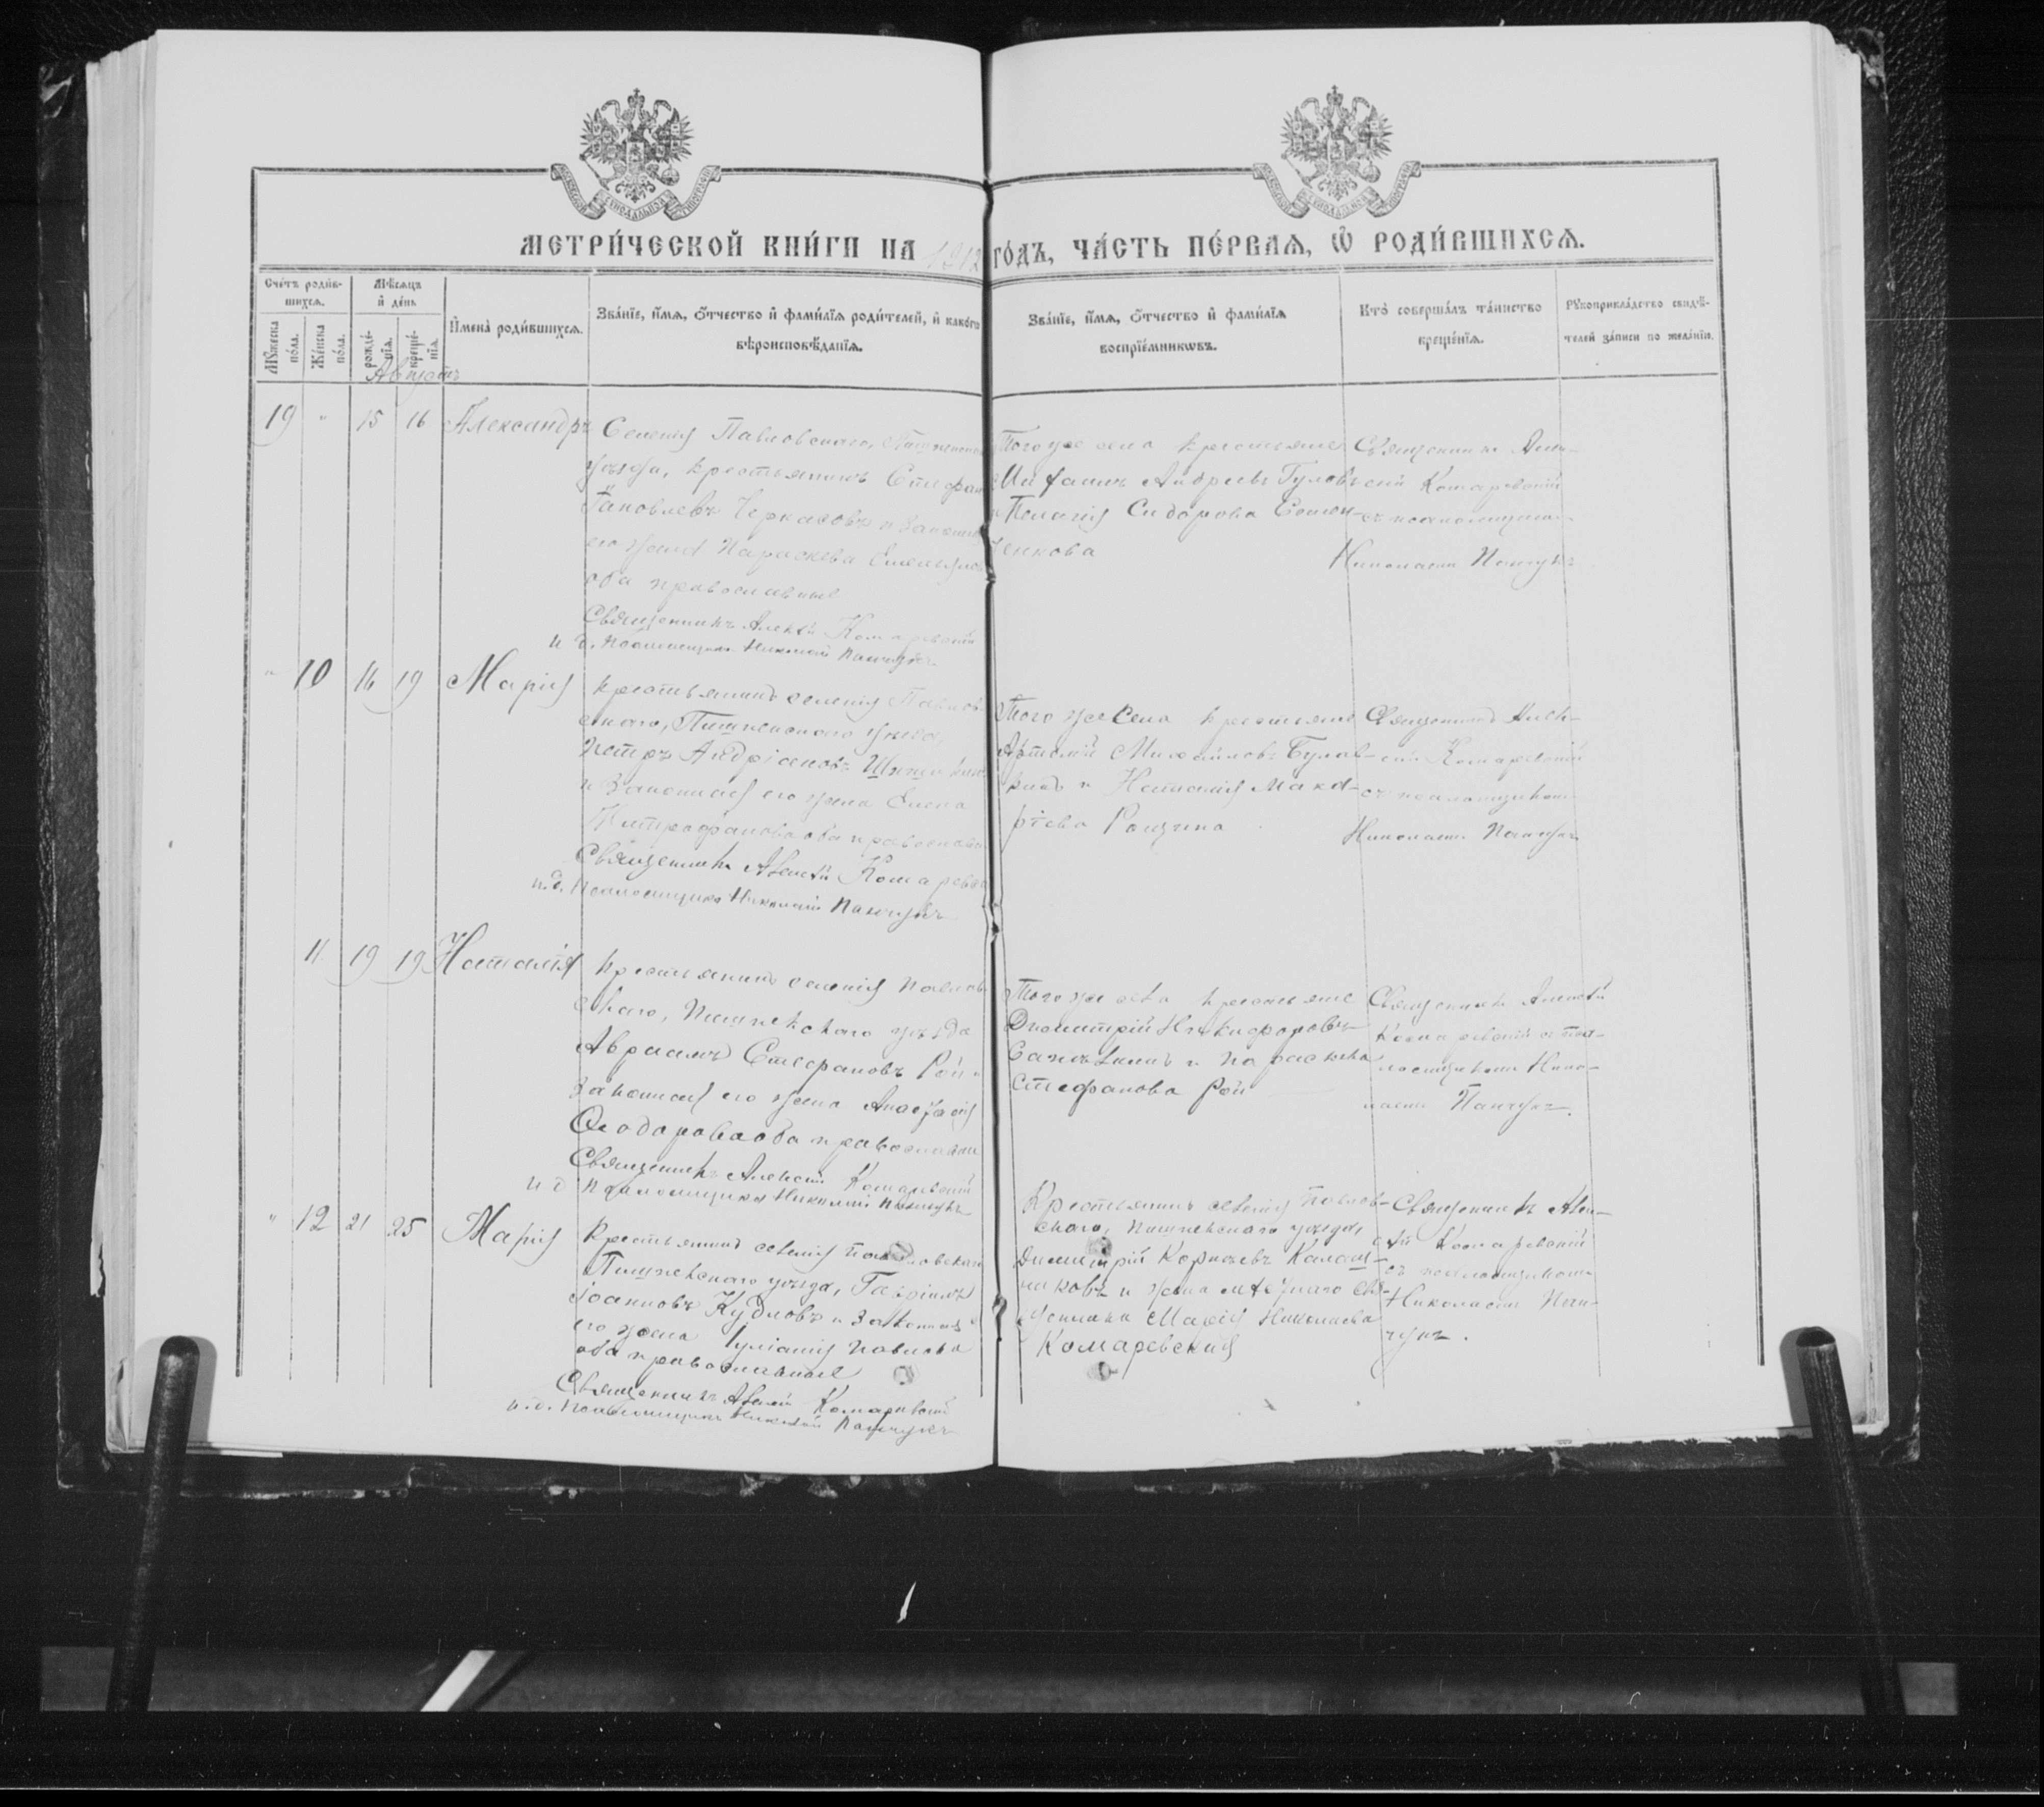 МЕТРИ́ЧЕСКОЙ КНИ́ГИ НА 1912 ГО́ДЪ, ЧА́СТЬ ПЕ́РВАЯ, Ѡ҆ РОДИ́ВШИХСЯ.
Сче́тъ роди́вшихся.
Мꙋ́жеска по́ла.
Же́нска по́ла.
Мѣ́сяцъ и҆ де́нь
рожде́нїя.
креще́нїя.
И҆мена̀ роди́вшихся.
Зва́нїе, и҆́мя, ѻ҆́тчество и҆ фами́лїя роди́телей, и҆ како́гѡ
вѣроисповѣ́данїя.
Зва́нїе, и҆́мя, ѻ҆́тчество и҆ фами́лїя
воспрїе́мникѡвъ.
Кто̀ соверша́лъ та́инство
креще́нїя.
Рꙋкоприкла́дство свидѣ́-
телей за́писи по жела́нїю.
Августъ
19 " 15 16 Александръ
Селенія Павловскаго, Пишпекскаго
уѣзда, крестьянинъ Стефанъ
Іаковлевъ Черкасовъ и законная
его жена Параскева
оба православные
Священникъ Алексій Комаревскій
и. д. Псаломщика Николай Панчукъ
Того же села крестьяне
Андреевъ
и Пелагія Сидорова Семен-
ченкова
Священникъ Алек-
сій Комаревскій
съ псаломщикомъ
Николаемъ Панчукъ
" 10 16 19 Марія
крестьянинъ селенія Павлов-
скаго, Пишпекскаго уѣзда,
Петръ Андріановъ
и законная его жена Елена
Митрофанова оба православн
Священникъ Алексій Комаревскій
и. д. Псаломщика Николай Панчукъ
Того же села крестьяне
Артемій Михайловъ Булав-
кинъ и Наталія Мака-
ріева Рощина
Священникъ Алек-
сій Комаревскій
съ псаломщикомъ
Николаемъ Панчукъ
11 19 19 Наталія
крестьянинъ селенія Павлов
скаго, Пишпекскаго уѣзда
Авраамъ Стефановъ Рой и
законная его жена Анастасія
Ѳеодорова оба православн
Священникъ Алексій Комаревскій
и д Псаломщика Николай Панчукъ
Того же села крестьяне
Димитрій Никифоровъ
и Параскева
Стефанова Рой
Священникъ Алексій
Комаревскій съ пса-
ломщикомъ Нико-
лаемъ Панчукъ.
" 12 21 25 Марія
Крестьянинъ селенія Павловскаго
Пишпекскаго уѣзда, Гавріилъ
Іоанновъ Кудловъ и законная
его жена Іуліанія Павлова
оба православные
Священникъ Алексій Комаревскій
и. д. Псаломщика Николай Панчукъ
Крестьянинъ селенія Павлов-
скаго, Пишпекскаго уѣзда,
Димитрій Корнѣевъ Калаш-
никовъ и жена мѣстнаго свя-
щенника Марія Николаева
Комаревская
Священникъ Алек-
сѣй Комаревскій
съ псаломщикомъ
Николаемъ Пан-
чукъ.